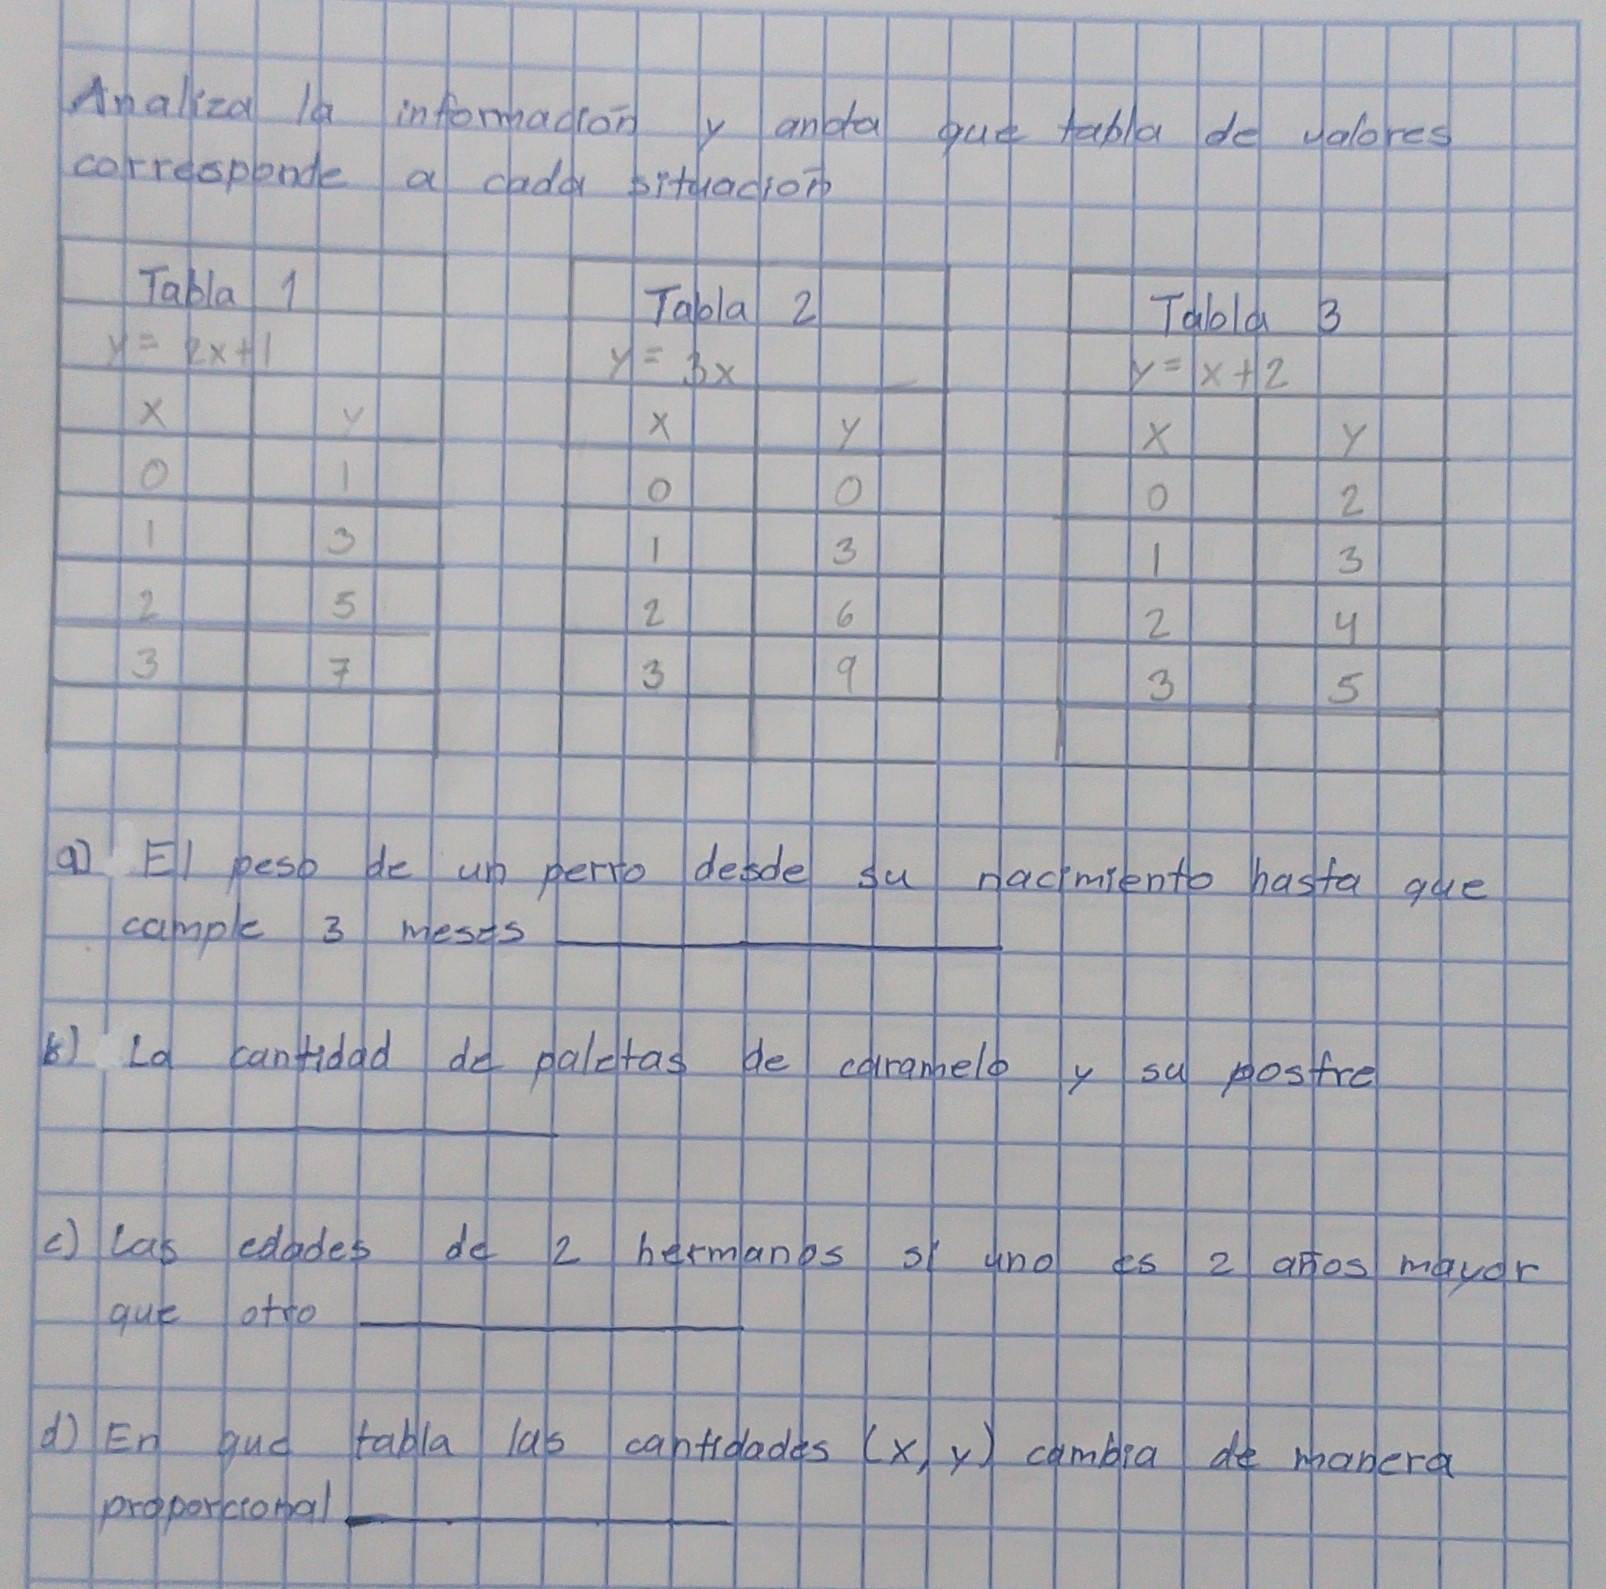 Analiza la información y anota que tabla de valores
corresponde a cada situación
Tabla 1
y= 2x+1
x y
0 1
1 3
2 5
3 7
Tabla 2
y= 3x
x y
0 0
1 3
2 6
3 9
Tabla 3
y= x+2
x y
0 2
1 3
2 4
3 5
a) El peso de un perro desde su nacimiento hasta que
cumple 3 meses
b) La cantidad de paletas de caramelo y su postre
c) Las edades de 2 hermanos si uno es 2 años mayor
que otro
d) En que tabla las cantidades (x, y) cambia de manera
proporcional